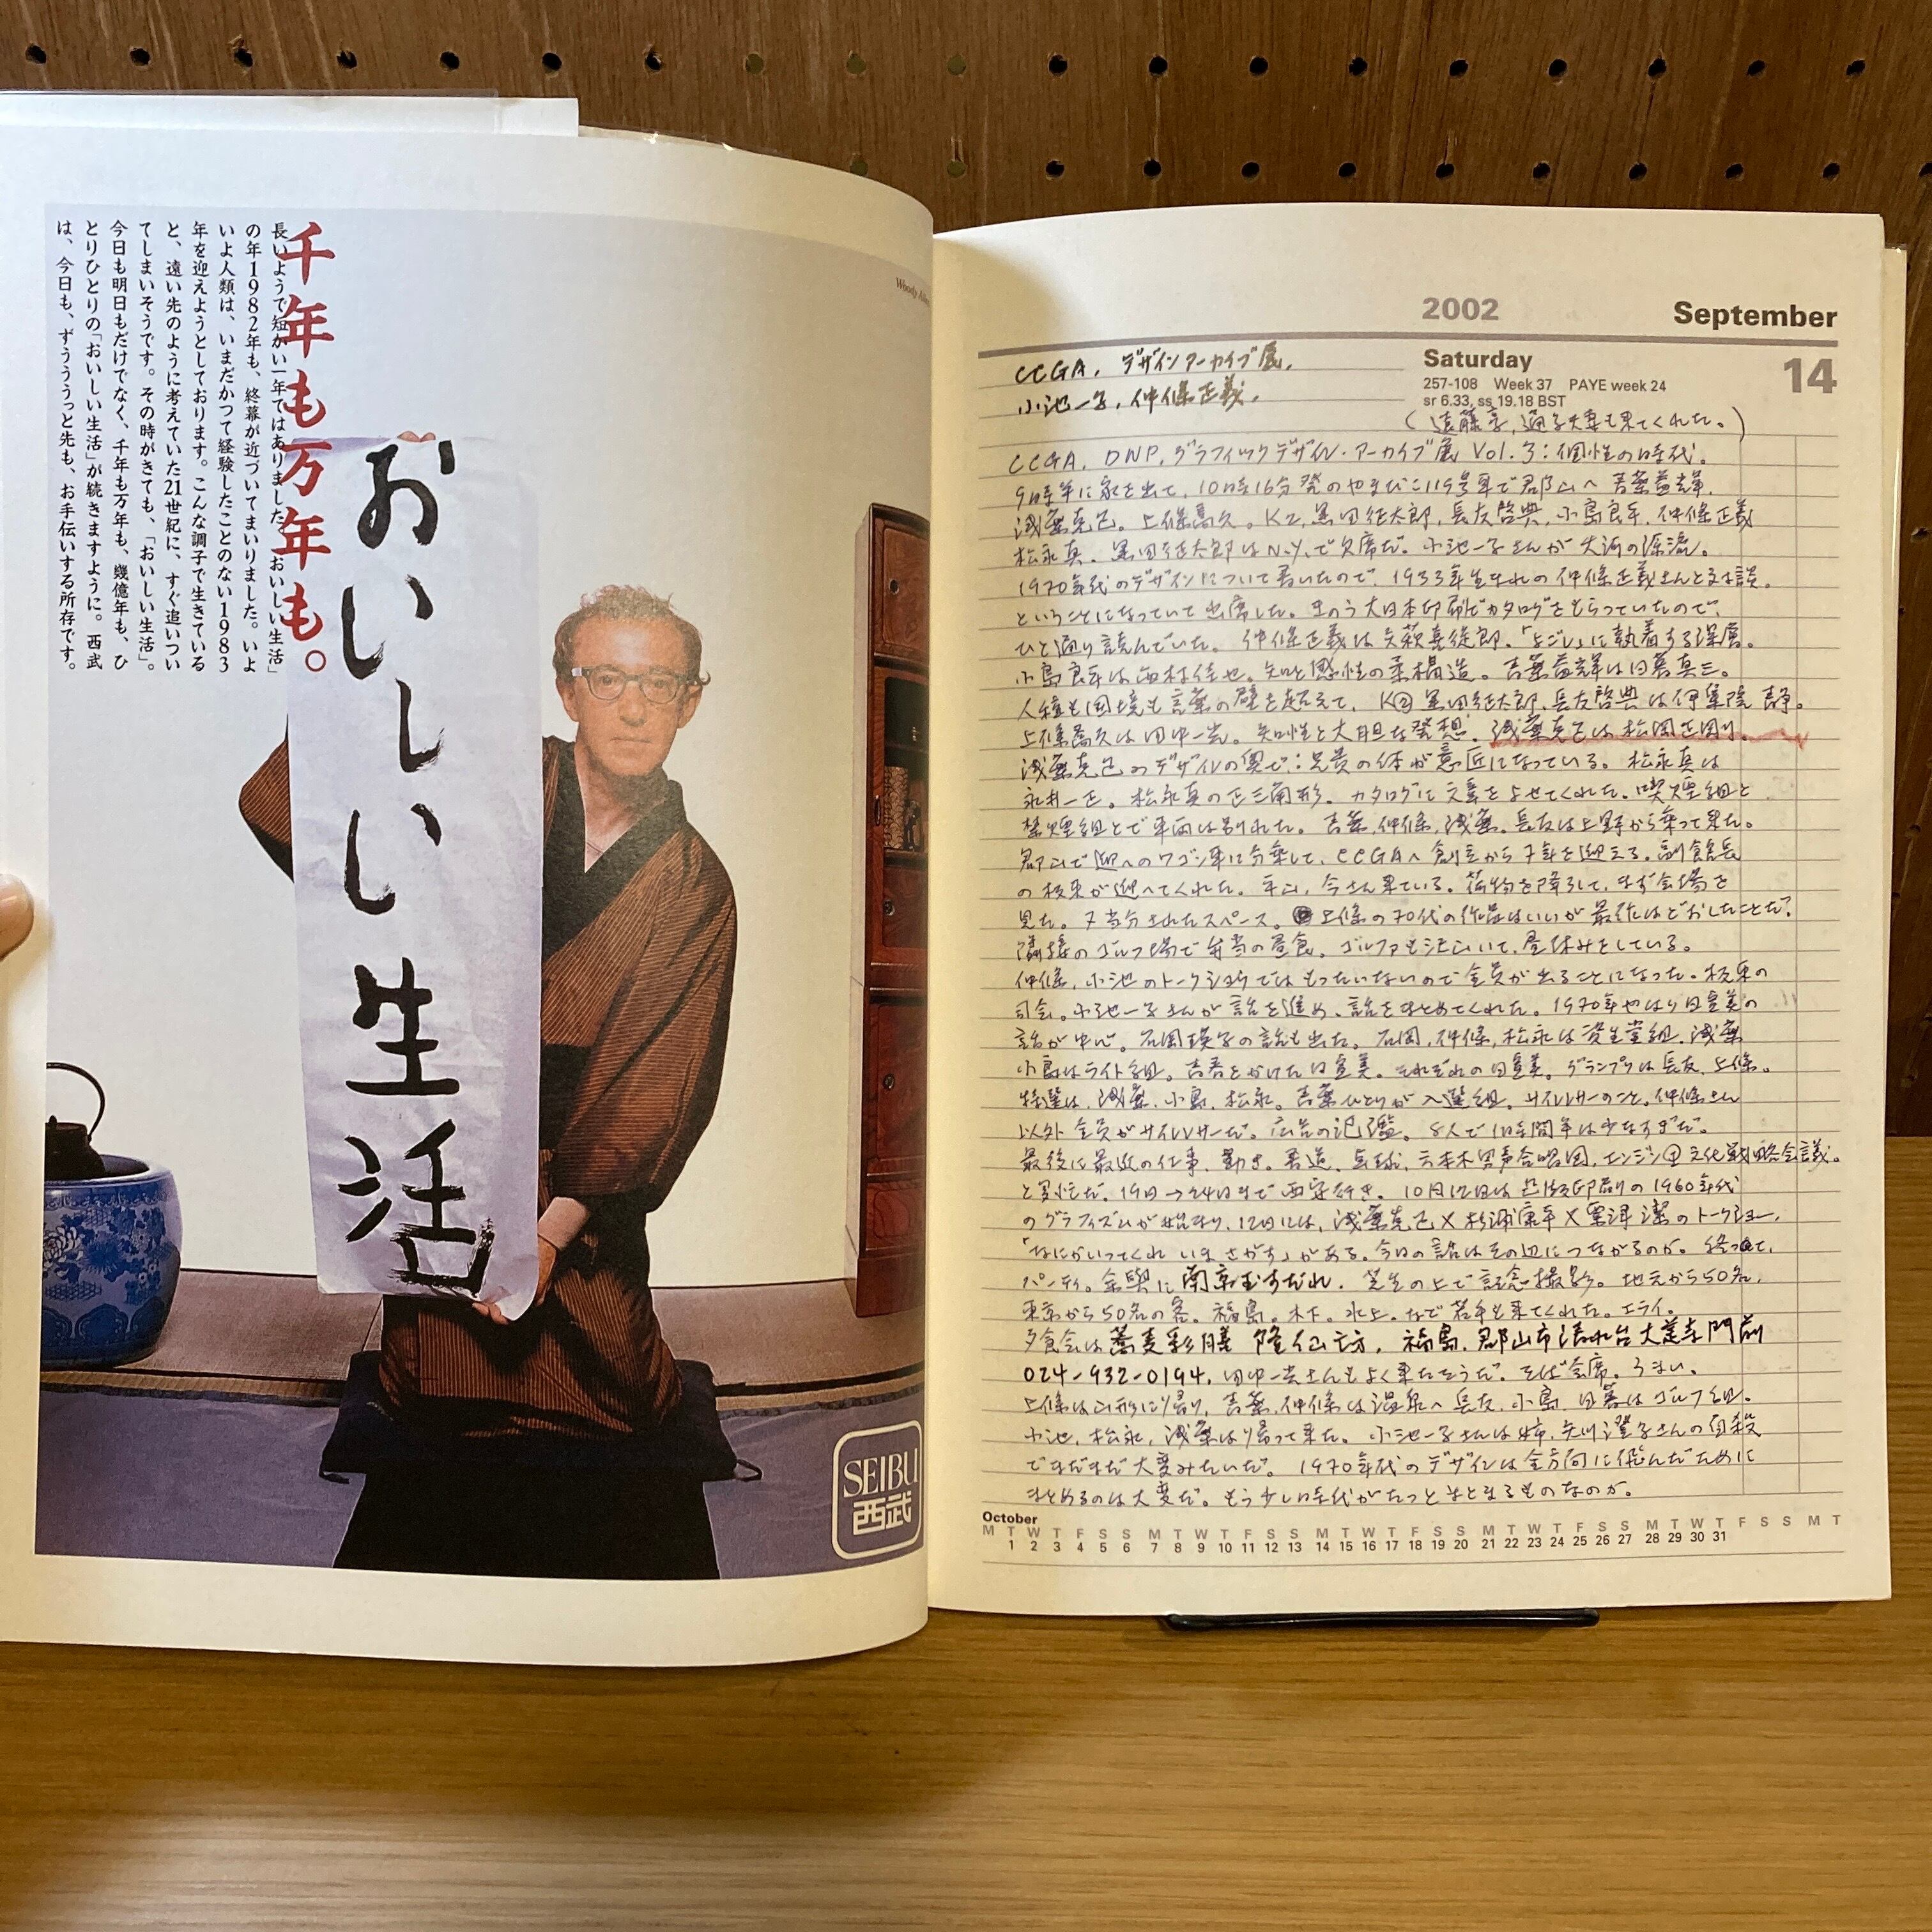 千年も万年も。
長いようで短かい一年ではありました。「おいしい生活」
の年1982年も、終幕が近づいてまいりました。いよ
いよ人類は、いまだかつて経験したことのない1983
年を迎えようとしております。こんな調子で生きている
と、遠い先のように考えていた21世紀に、すぐ追いつい
てしまいそうです。その時がきても、「おいしい生活」。
今日も明日もだけでなく、千年も万年も、幾億年も、ひ
とりひとりの「おいしい生活」が続きますように。西武
は、今日も、ずうううっと先も、お手伝いする所存です。
おいしい生活
Woody Allen
SEIBU
西武
2002 September
Saturday 14
257-108 Week 37 PAYE week 24
sr 6.33, ss 19.18 BST
CCGA. デザインアーカイブ展.
小池一子, 仲條正義.
(遠藤享, 通子夫妻も来てくれた。)
CCGA. DNP. グラフィックデザイン・アーカイブ展 Vol.3:個性の時代。
9時半に家を出て、10時16分発のやまびこ119号車で郡山へ 青葉益輝.
浅葉克己。上條喬久。K2, 黒田征太郎, 長友啓典, 小島良平, 仲條正義
松永真. 黒田征太郎はN.Y.で欠席だ。小池一子さんが大河の源流。
1970年代のデザインについて書いたので、1933年生まれの仲條正義さんと対談。
ということになっていて出席した。きのう大日本印刷でカタログをもらっていたので、
ひと通り読んでいた。仲條正義は矢萩喜従郎.「よごし」に執着する深層。
小島良平は西村佳也。知と感性の柔構造。青葉益輝は日暮真三。
人種も国境も言葉の壁を超えて、K② 黒田征太郎、長友啓典は伊集院静。
上條喬久は田中一光。知性と大胆な発想. 浅葉克己は松岡正剛。
浅葉克己のデザインの奥で:兄貴の体が意匠になっている。松永真は
永井一正。松永真の正三角形. カタログに文章をよせてくれた。喫煙組と
禁煙組とで車両は別れた。青葉, 仲條, 浅葉, 長友は上野から乗って来た。
郡山で迎へのワゴン車に分乗して、CCGAへ 創立から7年を迎える。副館長
の板東が迎へてくれた。平山, 今さん来ている。荷物を降ろして、まず会場を
見た。7等分されたスペース。上條の70代の作品はいいが最作はどおしたことだ?
隣接のゴルフ場で弁当の昼食。ゴルファも沢山いて、昼休みをしている。
仲條, 小池のトークショウではもったいないので全員が出ることになった。板東の
司会。小池一子さんが話を進め、話をまとめてくれた。1970年やはり日宣美の
話が中心。石岡瑛子の話も出た。石岡, 仲條, 松永は資生堂組. 浅葉
小島はライト組。青春をかけた日宣美。それぞれの日宣美。グランプリは長友, 上條。
特選は、浅葉, 小島, 松永。青葉ひとりが入選組。サイレンサーのこと。仲條さん
以外全員がサイレンサーだ。広告の氾濫。8人で1時間半は少なすぎだ。
最後に最近の仕事、動き。書道、卓球、六本木男声合唱団、エンジン01文化戦略会議。
と多忙だ。19日→24日まで西安行き。10月12日は凸版印刷の1960年代
のグラフィズムが始まり、12日には、浅葉克己×杉浦康平×粟津潔のトークショー、
「なにかいってくれ いまさがす」がある。今日の話はその辺につながるのか。終って、
パーティ。余興に南京玉すだれ. 芝生の上で記念撮影。地元から50名,
東京から50名の客。福島. 木下. 水上. などで若手も来てくれた。エライ。
夕食会は蕎麦彩膳 隆仙坊, 福島, 郡山市清水台大慈寺門前
024-932-0194. 田中一光さんもよく来たそうだ。そば会席。うまい。
上條は山形に帰り、青葉, 仲條は温泉へ 長友, 小島, 日暮はゴルフ組。
小池, 松永, 浅葉は帰って来た。小池一子さんは姉, 矢川澄子さんの自殺
でまだまだ大変みたいだ。1970年代のデザインは全方向に飛んだために
まとめるのは大変だ。もう少し時代がたつとまとまるものなのか。
October
M T W T F S S M T W T F S S M T W T F S S M T W T F S S M T W T F S S M T
1 2 3 4 5 6 7 8 9 10 11 12 13 14 15 16 17 18 19 20 21 22 23 24 25 26 27 28 29 30 31